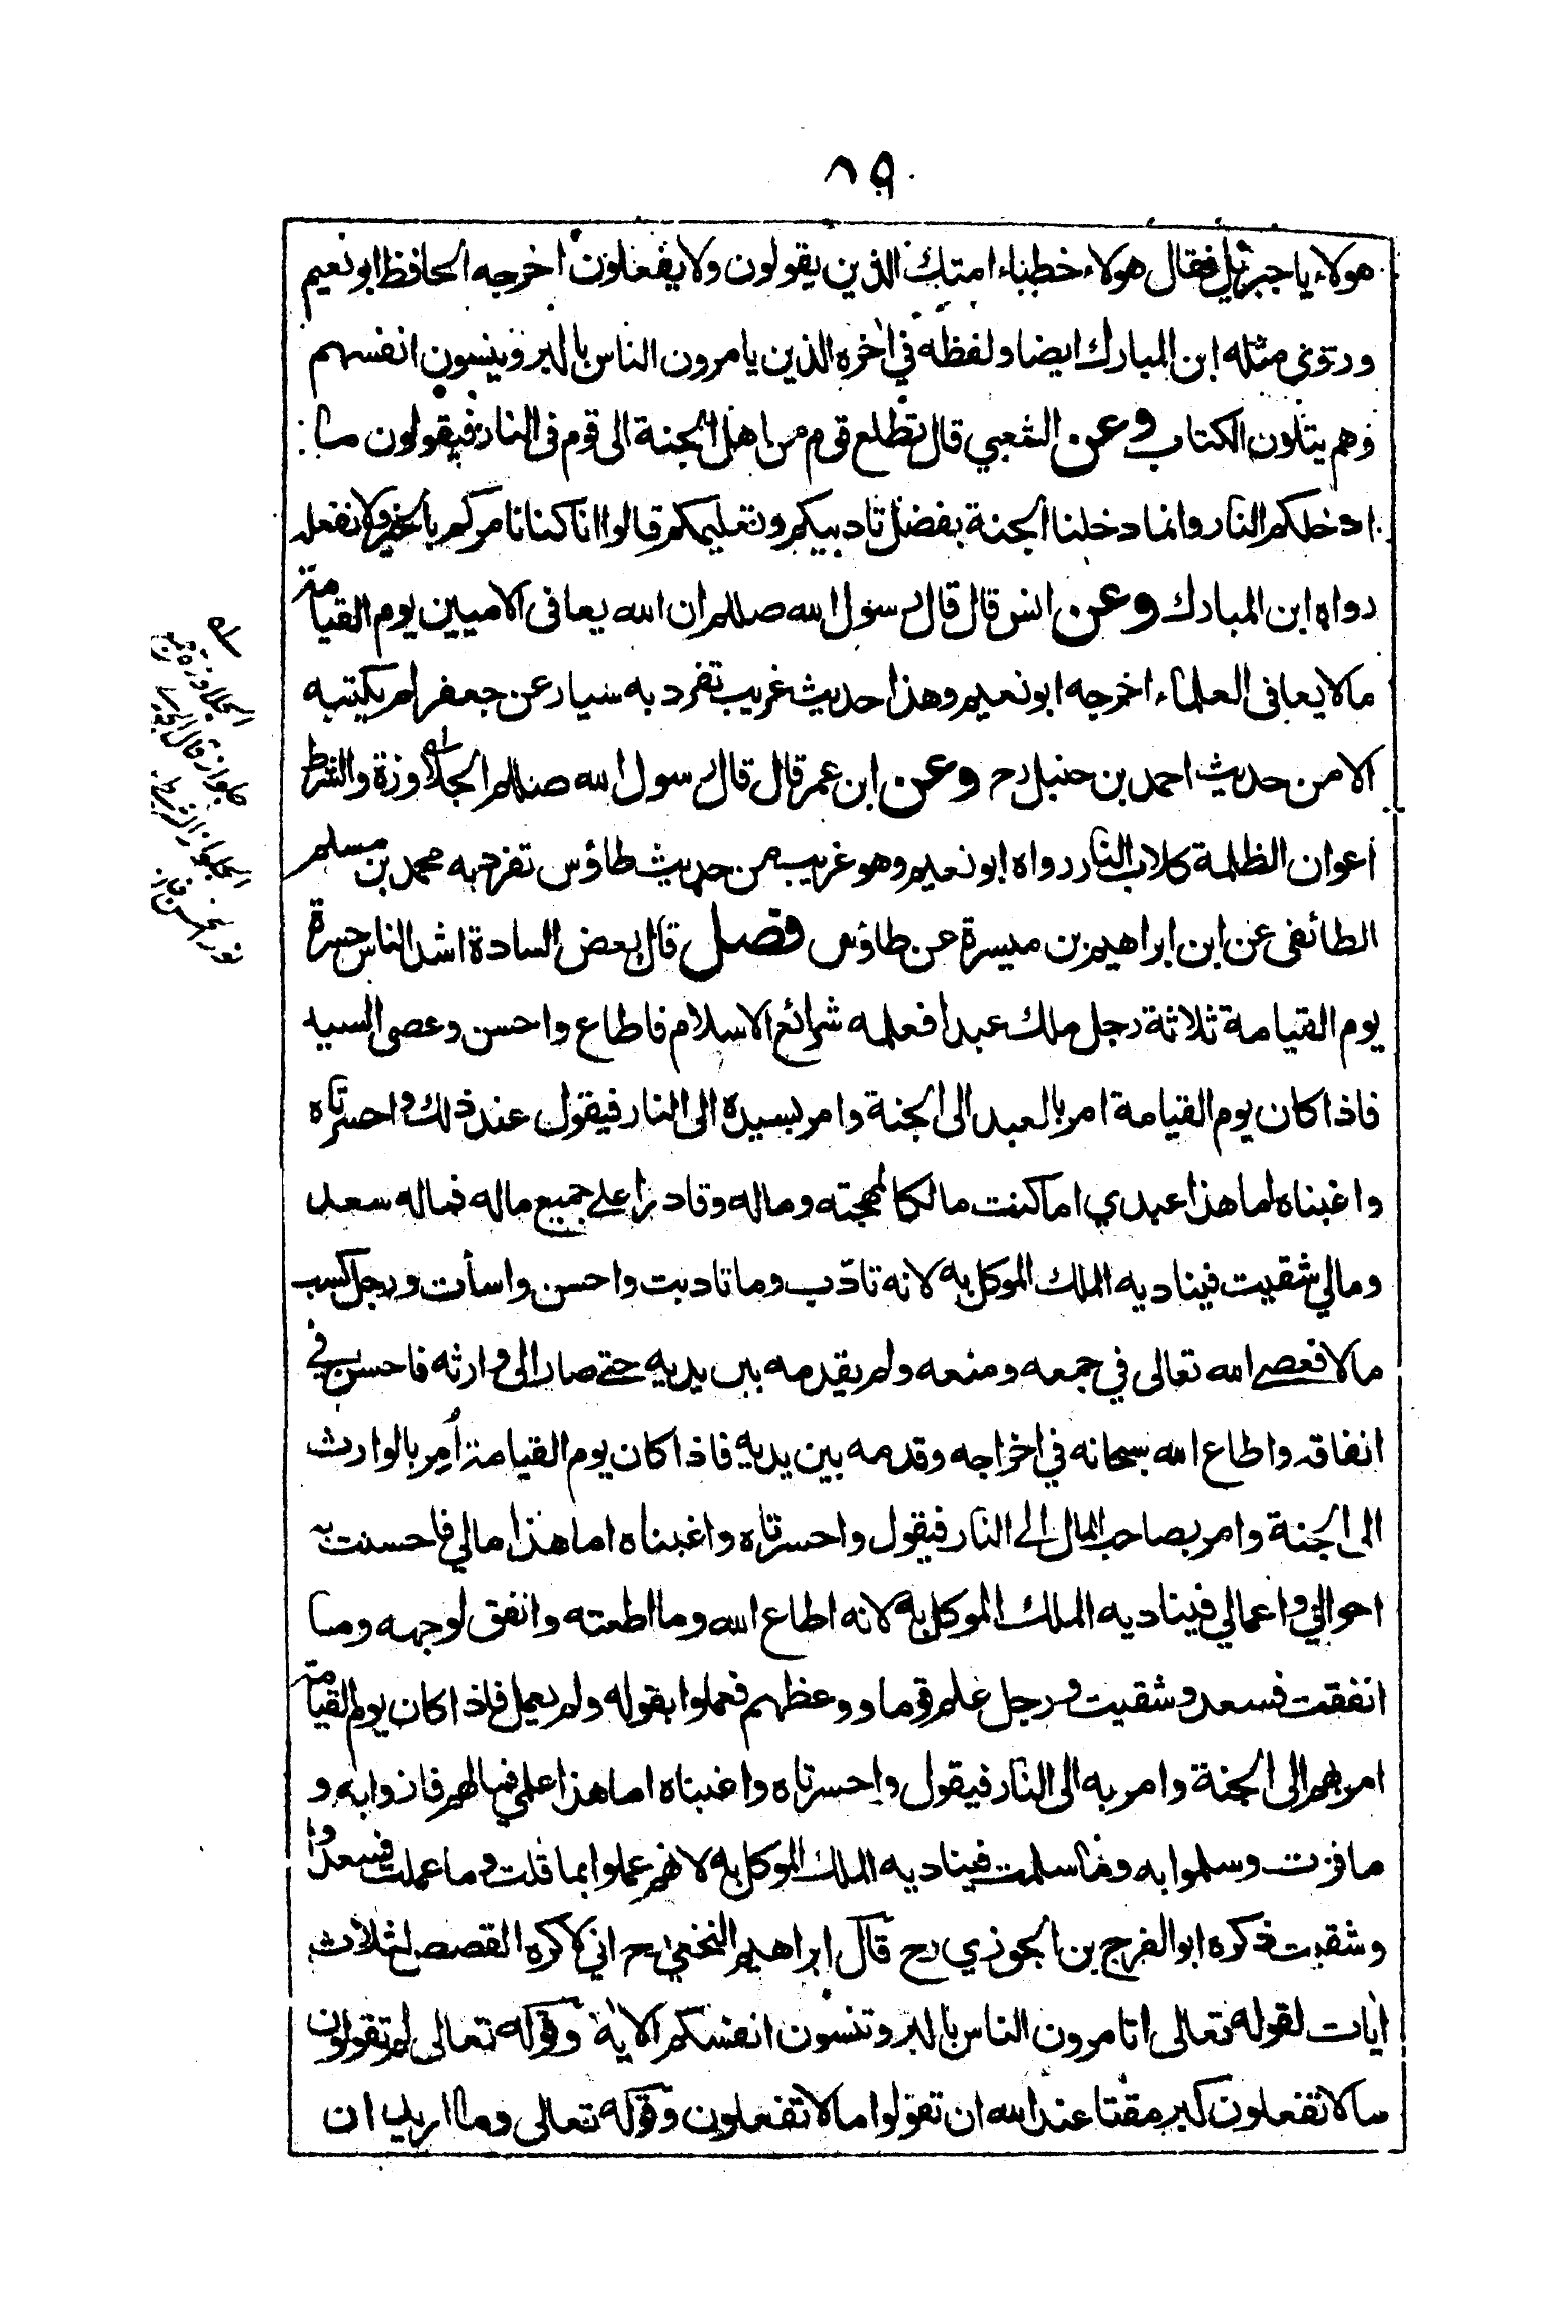 ٨٩
هولاء يا جبرئيل فقال هولاء خطباء امتك الذين يقولون ولا يفعلون اخرجه الحافظ ابو نعيم
وروى مثله ابن المبارك ايضا ولفظه في اخره الذين يامرون الناس بالبر وينسون انفسهم
وهم يتلون الكتاب وعن الشعبي قال تطلع قوم من اهل الجنة الى قوم فى النار فيقولون ما
ادخلكم النار وانما دخلنا الجنة بفضل تاديبكم وتعليمكم قالوا انا كنا نامركم بالخير ولا نفعله
رواه ابن المبارك وعن انس قال قال رسول الله صللم ان الله يعافى الاميين يوم القيامة
مالا يعافى العلماء اخرجه ابو نعيم وهذا حديث غريب تفرد به سيار عن جعفر لم يكتبه
الا من حديث احمد بن حنبل رح وعن ابن عمر قال قال رسول الله صللم الجلاوزة والشرط
اعوان الظلمة كلاب النار رواه ابو نعيم وهو غريب من حديث طاؤس تفرد به محمد بن مسلم
الطائفى عن ابن ابراهيم بن ميسرة عن طاؤس فصل قال بعض السادة اشد الناس حسرة
يوم القيامة ثلاثة رجل ملك عبدا فعلمه شرائع الاسلام فاطاع واحسن وعصى السيد
فاذا كان يوم القيامة امر بالعبد الى الجنة وامر بسيده الى النار فيقول عند ذلك واحسرتاه
واغبناه اما هذا عبدي اما كنت مالكا لمهجته وماله وقادرا على جميع ماله فماله سعد
ومالي شقيت فيناديه الملك الموكل به لانه تادّب وما تادبت واحسن واسأت ورجل كسب
مالا فعصى الله تعالى في جمعه ومنعه ولم يقدمه بين يديه حتى صار الى وارثه فاحسن في
انفاقه واطاع الله سبحانه في اخراجه وقدمه بين يديه فاذا كان يوم القيامة أمر بالوارث
الى الجنة وامر بصاحب المال الى النار فيقول واحسرتاه واغبناه اما هذا مالي فاحسنت به
احوالي واعمالي فيناديه الملك الموكل به لانه اطاع الله وما اطعته وانفق لوجهه وما
انفقت فسعد وشقيت ورجل علم قوما ووعظهم فعملوا بقوله ولم يعمل فاذا كان يوم القيامة
امر بهم الى الجنة وامر به الى النار فيقول واحسرتاه واغبناه اما هذا علمي فما لهم فازوا به و
ما فزت وسلموا به وما سلمت فيناديه الملك الموكل به لانهم عملوا بما قلت وما عملت فسعدوا
وشقيت ذكره ابو الفرج بن الجوزي رح قال ابراهيم النخعي رح اني لاكره القصص لثلاث
ايات لقوله تعالى اتامرون الناس بالبر وتنسون انفسكم الاية وقوله تعالى لم تقولون
مالا تفعلون كبر مقتا عند الله ان تقولوا مالا تفعلون وقوله تعالى وما اريد ان